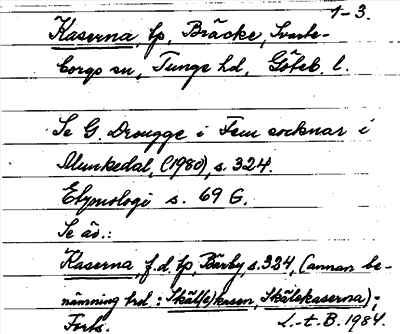 1-3.
Kaserna, tp, Bräcke, Svarte-
borgs sn, Tunge hd, Göteb. l.
Se G. Drougge i Fem socknar i
Munkedal, (1980), s. 324.
Etymologi s. 69 G.
Se äv.:
Kaserna, f.d. tp, Bärby, s. 324, (annan be-
nämning hd: Skäl(e)kasen, Skälekaserna);
Forts. L.-t B. 1984.